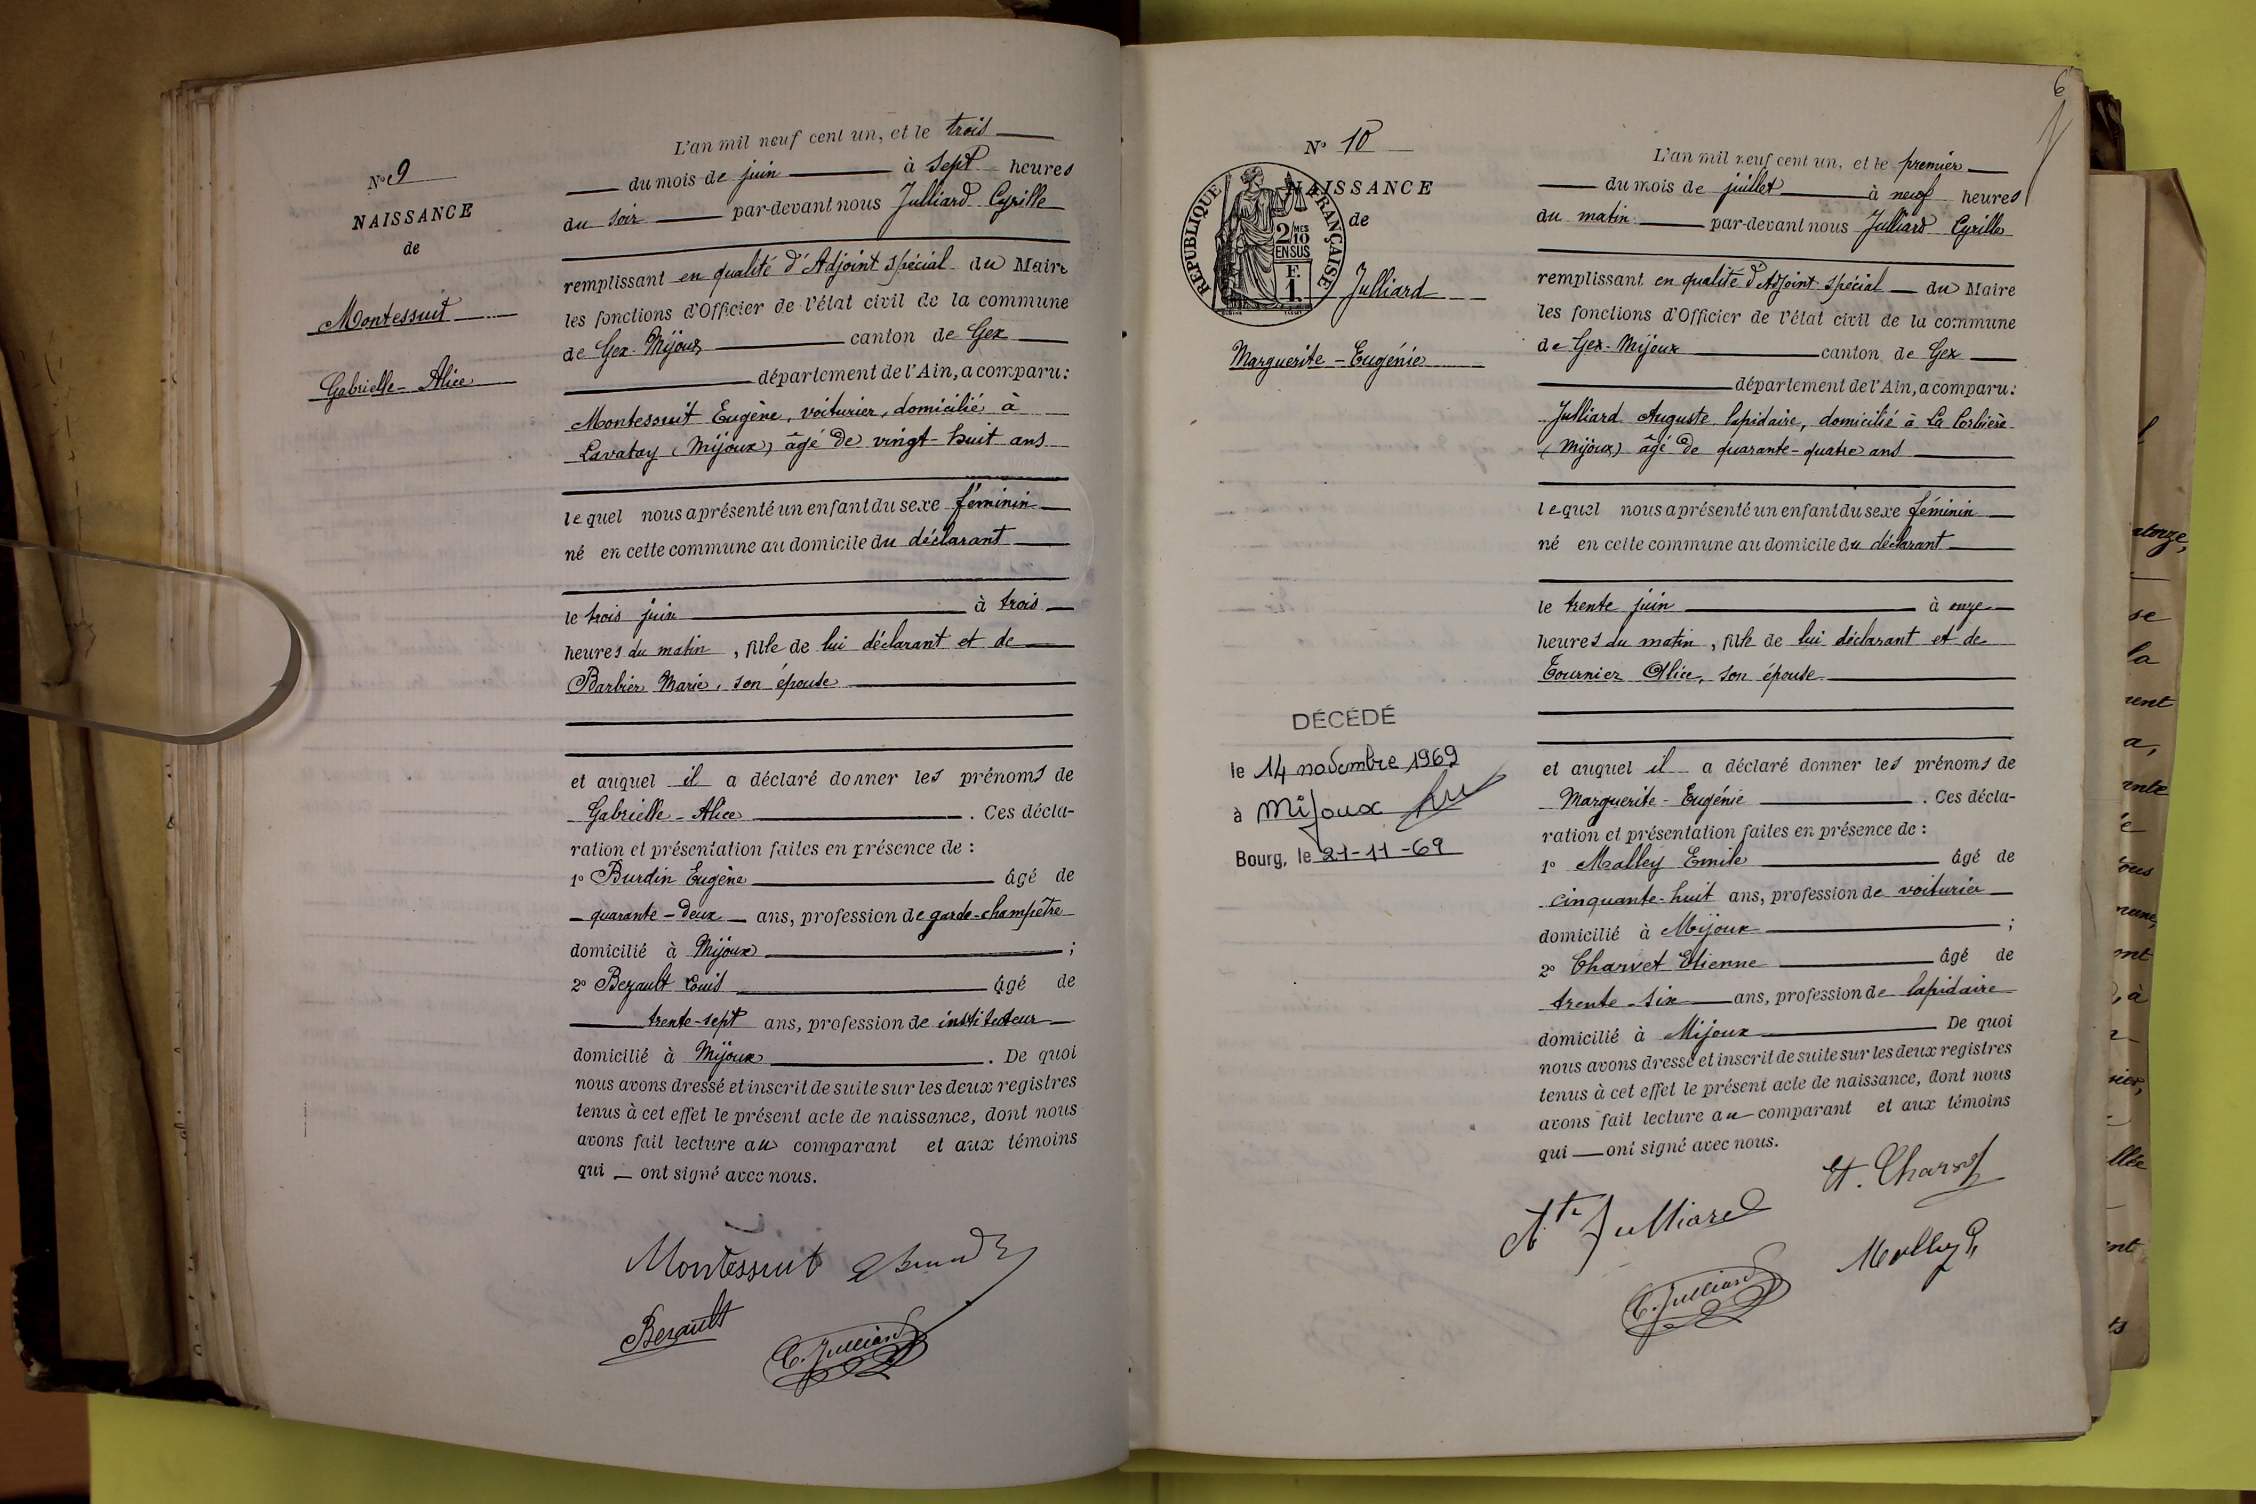 L'an mil neuf cent un, et le trois
Nº 9
du mois de juin à sept heures
NAISSANCE
du soir par-devant nous Julliard Cyrille
de
remplissant en qualité d'Adjoint spécial du Maire
Montessuit
les fonctions d'Officier de l'état civil de la commune
de Gex-Mijoux canton de Gex
Gabrielle-Alice
département de l'Ain, a comparu:
Montessuit Eugène, voiturier, domicilié à
Lavatay (Mijoux) âgé de vingt-huit ans
lequel nous a présenté un enfant du sexe féminin
né en cette commune au domicile du déclarant
le trois juin à trois
heures du matin, fille de lui déclarant et de
Barbier Marie, son épouse
et auquel il a déclaré donner les prénoms de
Gabrielle-Alice. Ces décla-
ration et présentation faites en présence de :
1º Burdin Eugène âgé de
quarante-deux ans, profession de garde-champêtre
domicilié à Mijoux ;
2º Bezault Louis âgé de
trente-sept ans, profession de instituteur
domicilié à Mijoux. De quoi
nous avons dressé et inscrit de suite sur les deux registres
tenus à cet effet le présent acte de naissance, dont nous
avons fait lecture au comparant et aux témoins
qui ont signé avec nous.
Montessuit
Bezault
C. Julliard
6
Nº 10
L'an mil neuf cent un, et le premier
NAISSANCE
du mois de juillet à neuf heures
de
du matin par-devant nous Julliard Cyrille
RÉPUBLIQUE FRANÇAISE
2/10 MES
EN SUS
F.
1.
remplissant en qualité d'Adjoint spécial du Maire
Julliard
les fonctions d'Officier de l'état civil de la commune
Marguerite-Eugénie
de Gex-Mijoux canton de Gex
département de l'Ain, a comparu:
Julliard Auguste lapidaire, domicilié à La Corbière
(Mijoux) âgé de quarante-quatre ans
lequel nous a présenté un enfant du sexe féminin
né en cette commune au domicile du déclarant
le trente juin à onze
heures du matin, fille de lui déclarant et de
Tournier Alice, son épouse
DÉCÉDÉ
le 14 novembre 1969
à Mijoux
Bourg, le 21-11-69
et auquel il a déclaré donner les prénoms de
Marguerite-Eugénie. Ces décla-
ration et présentation faites en présence de :
1º Malley Emile âgé de
cinquante-huit ans, profession de voiturier
domicilié à Mijoux ;
2º Charvet Etienne âgé de
trente-six ans, profession de lapidaire
domicilié à Mijoux De quoi
nous avons dressé et inscrit de suite sur les deux registres
tenus à cet effet le présent acte de naissance, dont nous
avons fait lecture au comparant et aux témoins
qui ont signé avec nous.
Et. Charvet
Ate Julliard
Malley
C. Julliard